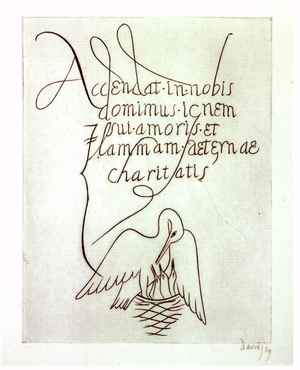 Accendat·in·nobis
domimus·ignem
Isui·amoris·et
flammam·aeternae
charitatis